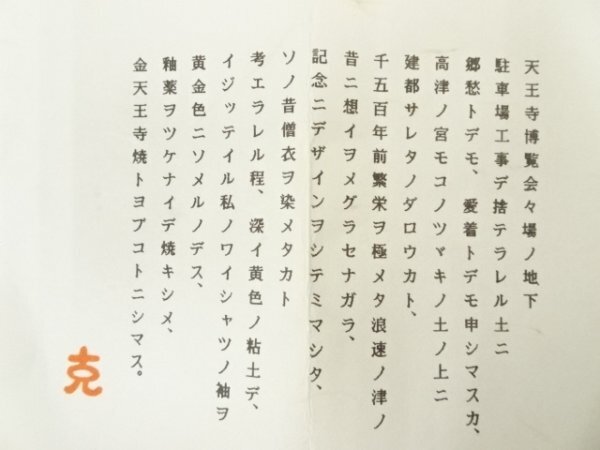 天王寺博覧会々場ノ地下
駐車場工事デ捨テラレル土ニ
郷愁トデモ、愛着トデモ申シマスカ、
高津ノ宮モコノツヾキノ土ノ上ニ
建都サレタノダロウカト、
千五百年前繁栄ヲ極メタ浪速ノ津ノ
昔ニ想イヲメグラセナガラ、
記念ニデザインヲシテミマシタ、
ソノ昔僧衣ヲ染メタカト
考エラレル程、深イ黄色ノ粘土デ、
イジッテイル私ノワイシャツノ袖ヲ
黄金色ニソメルノデス、
釉薬ヲツケナイデ焼キシメ、
金天王寺焼トヨブコトニシマス。
克